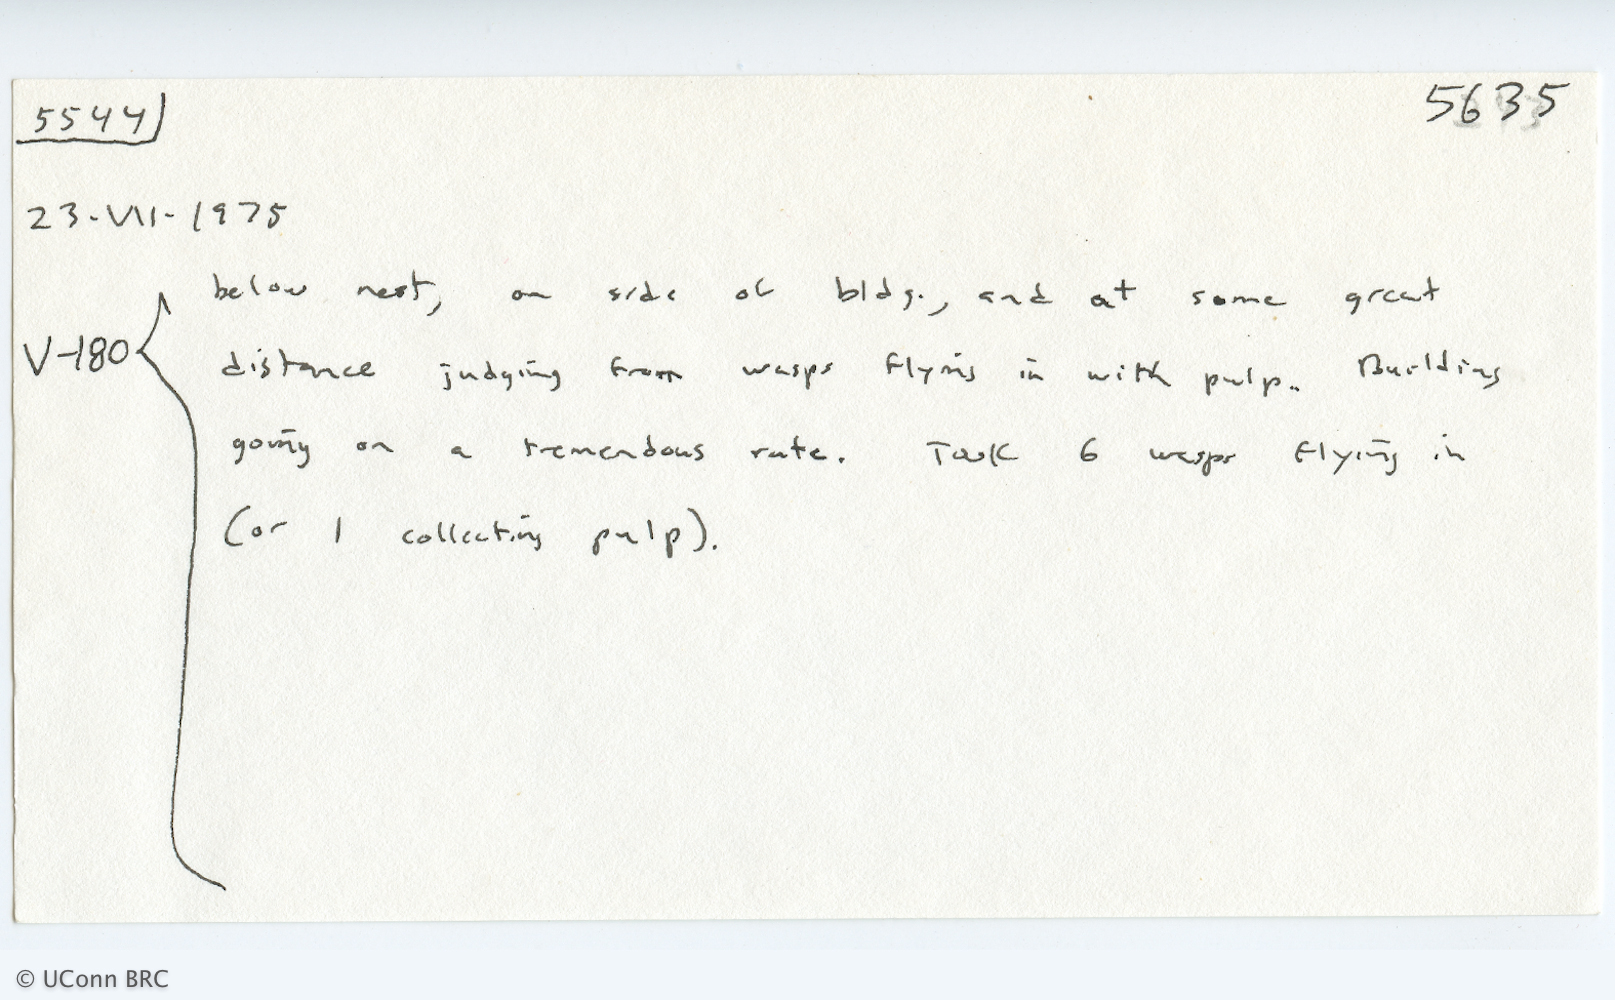 5544 5635
23-VII-1975
below nest, on side of bldg., and at some great
V-180 distance judging from wasps flying in with pulp. Building
going on a tremendous rate. Took 6 wasps flying in
(or 1 collecting pulp).
© UConn BRC